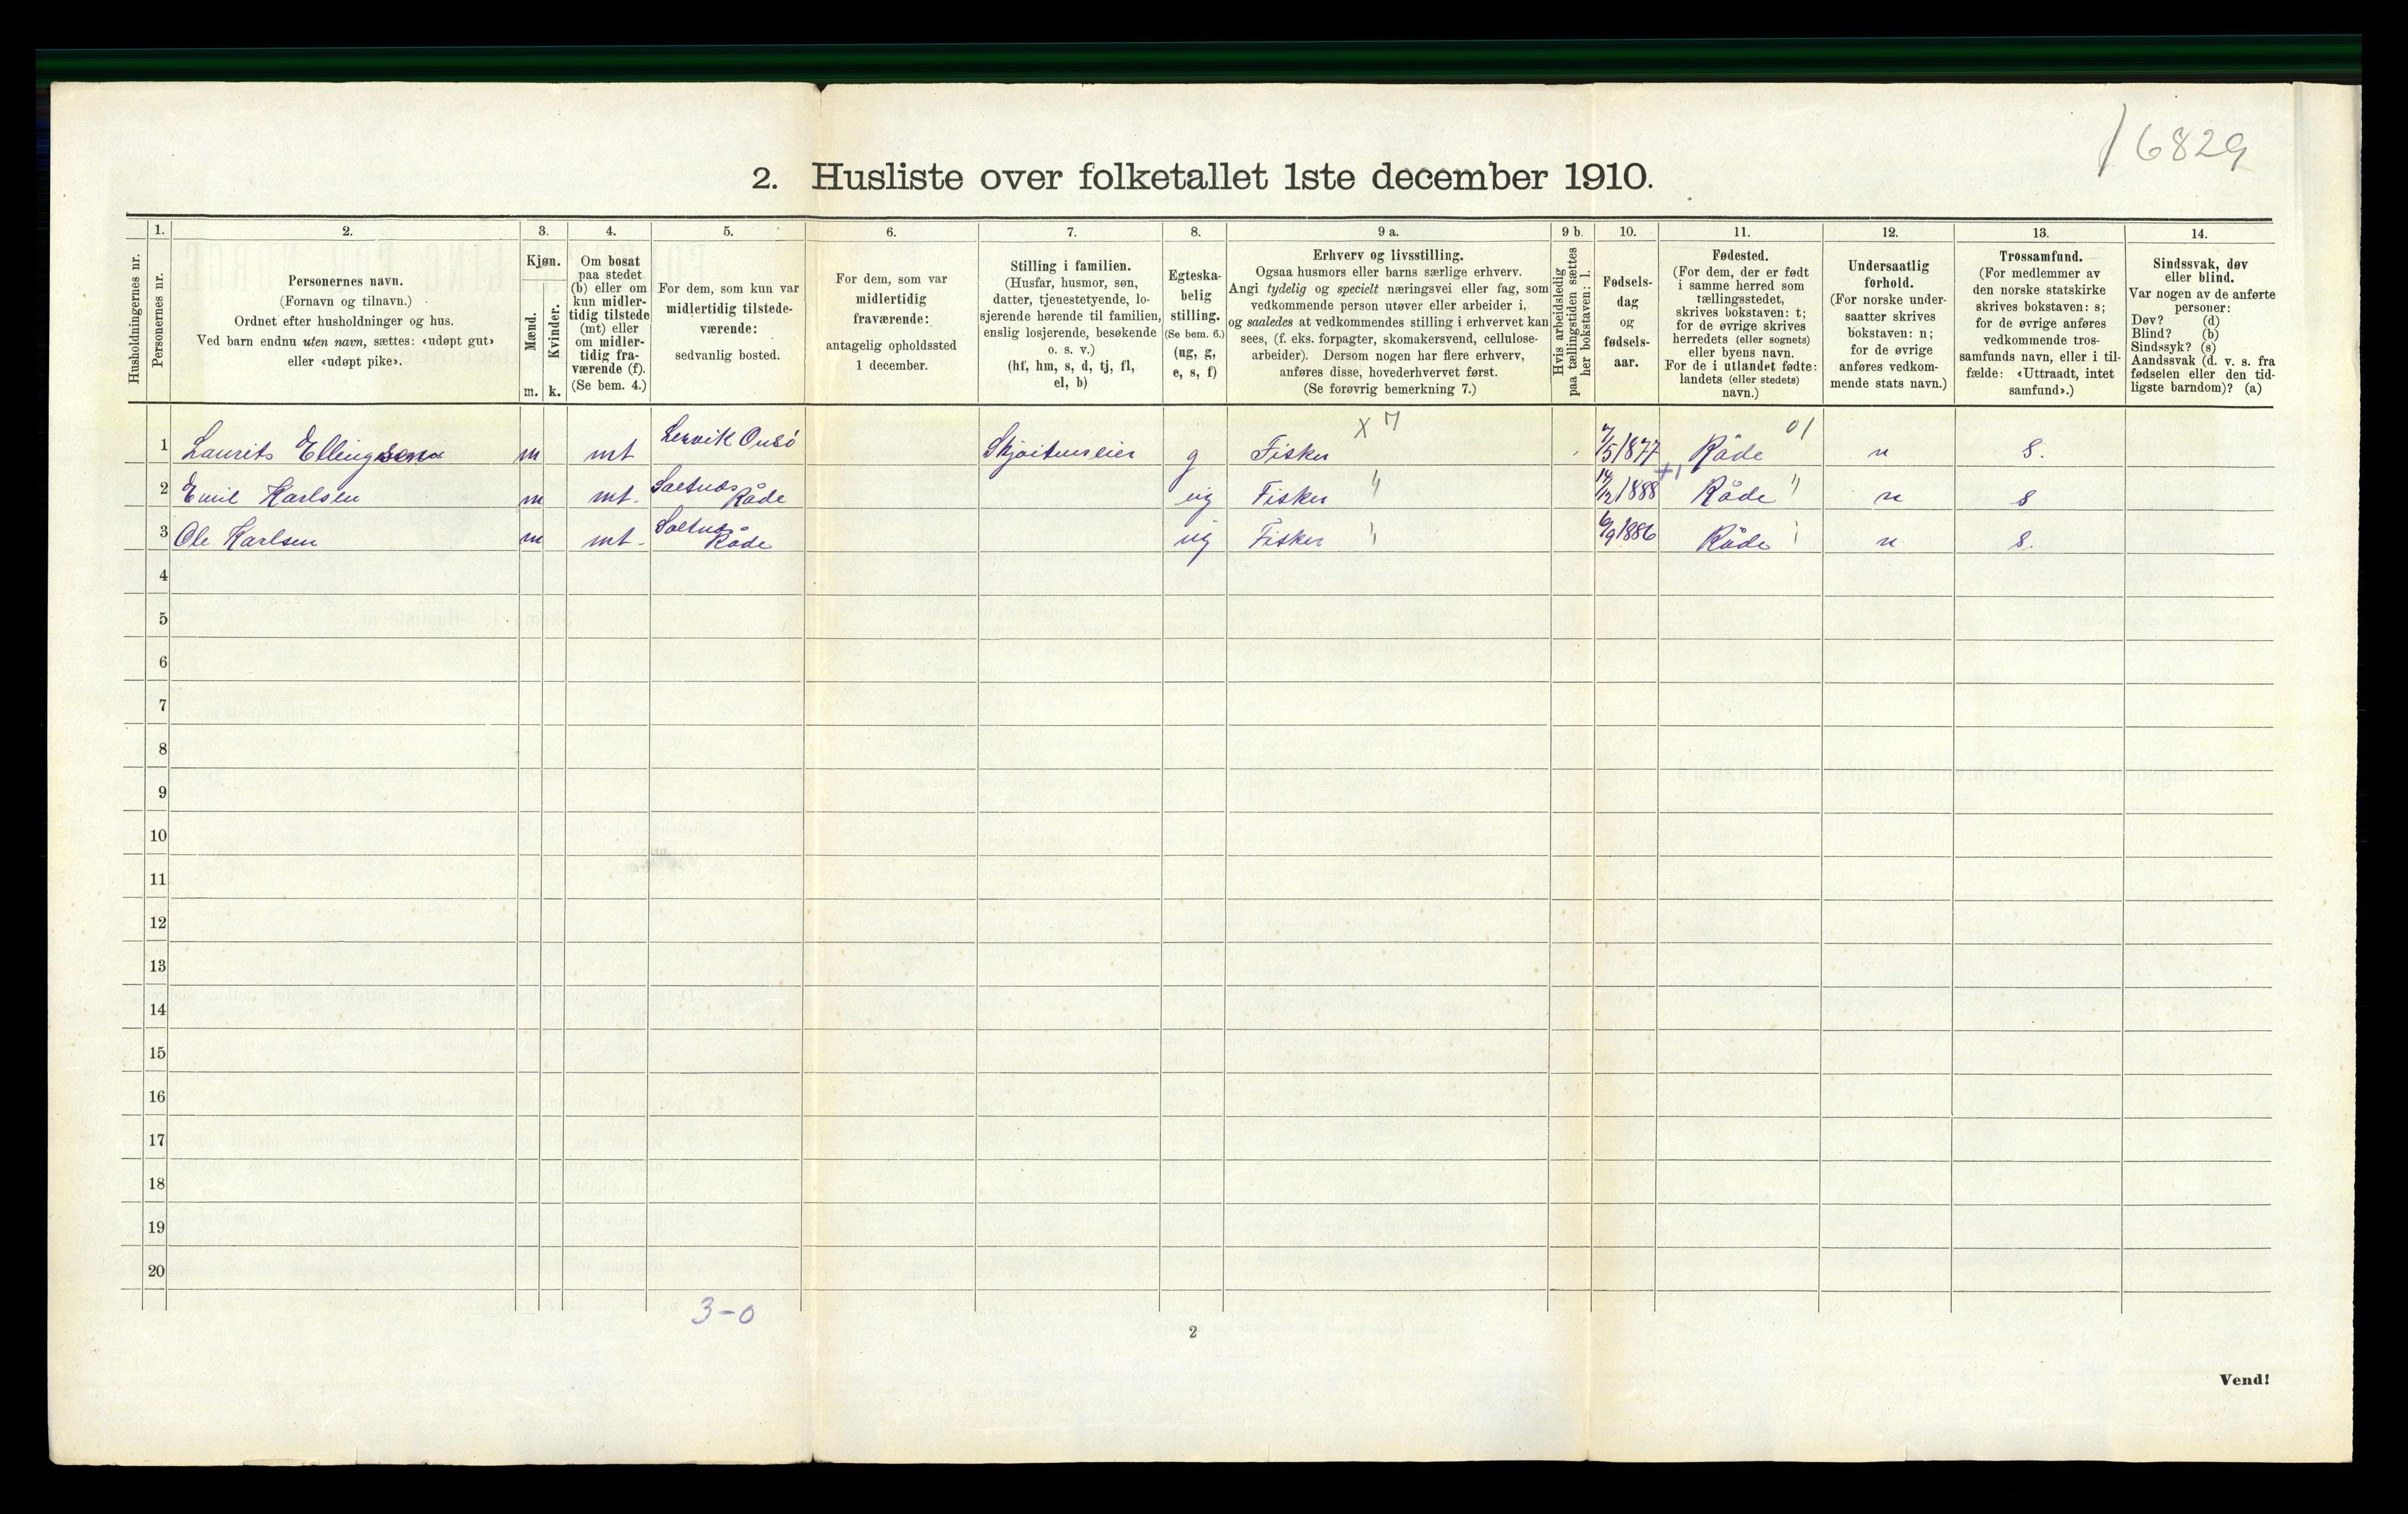 16829
2. Husliste over folketallet 1ste december 1910.
Husholdningernes nr.
1.
Personernes nr.
2.
Personernes navn.
(Fornavn og tilnavn.)
Ordnet efter husholdninger og hus.
Ved barn endnu uten navn, sættes: «udøpt gut»
eller «udøpt pike».
3.
Kjøn.
Mænd.
Kvinder.
m.
k.
4.
Om bosat
paa stedet
(b) eller om
kun midler-
tidig tilstede
(mt) eller
om midler-
tidig fra-
værende (f).
(Se bem. 4.)
5.
For dem, som kun var
midlertidig tilstede-
værende:
sedvanlig bosted.
6.
For dem, som var
midlertidig
fraværende:
antagelig opholdssted
1 december.
7.
Stilling i familien.
(Husfar, husmor, søn,
datter, tjenestetyende, lo-
sjerende hørende til familien,
enslig losjerende, besøkende
o. s. v.)
(hf, hm, s, d, tj, fl,
el, b)
8.
Egteska-
belig
stilling.
(Se bem. 6.)
(ug, g,
e, s, f)
9 a.
Erhverv og livsstilling.
Ogsaa husmors eller barns særlige erhverv.
Angi tydelig og specielt næringsvei eller fag, som
vedkommende person utøver eller arbeider i,
og saaledes at vedkommendes stilling i erhvervet kan
sees, (f. eks. forpagter, skomakersvend, cellulose-
arbeider). Dersom nogen har flere erhverv,
anføres disse, hovederhvervet først.
(Se forøvrig bemerkning 7.)
9 b.
Hvis arbeidsledig
paa tællingstiden sættes
her bokstaven: l.
10.
Fødsels-
dag
og
fødsels-
aar.
11.
Fødested.
(For dem, der er født
i samme herred som
tællingsstedet,
skrives bokstaven: t;
for de øvrige skrives
herredets (eller sognets)
eller byens navn.
For de i utlandet fødte:
landets (eller stedets)
navn.)
12.
Undersaatlig
forhold.
(For norske under-
saatter skrives
bokstaven: n;
for de øvrige
anføres vedkom-
mende stats navn.)
13.
Trossamfund.
(For medlemmer av
den norske statskirke
skrives bokstaven: s;
for de øvrige anføres
vedkommende tros-
samfunds navn, eller i til-
fælde: «Uttraadt, intet
samfund».)
14.
Sindssvak, døv
eller blind.
Var nogen av de anførte
personer:
Døv? (d)
Blind? (b)
Sindssyk? (s)
Aandssvak (d. v. s. fra
fødselen eller den tid-
ligste barndom)? (a)
1 Laurits Ellingsen m mt Lervik Onsö g Fisker X 7 7/5 1877 Råde 01 n s.
2 Emil Karlsen m mt. Saltnes Råde ug Fisker " 14/2 1888 +1 Råde " n s
3 Ole Karlsen m mt - Saltnes Råde ug Fisker 6/9 1886 Råde n s.
4
5
6
7
8
9
10
11
12
13
14
15
16
17
18
19
20
3-0
2
Vend!